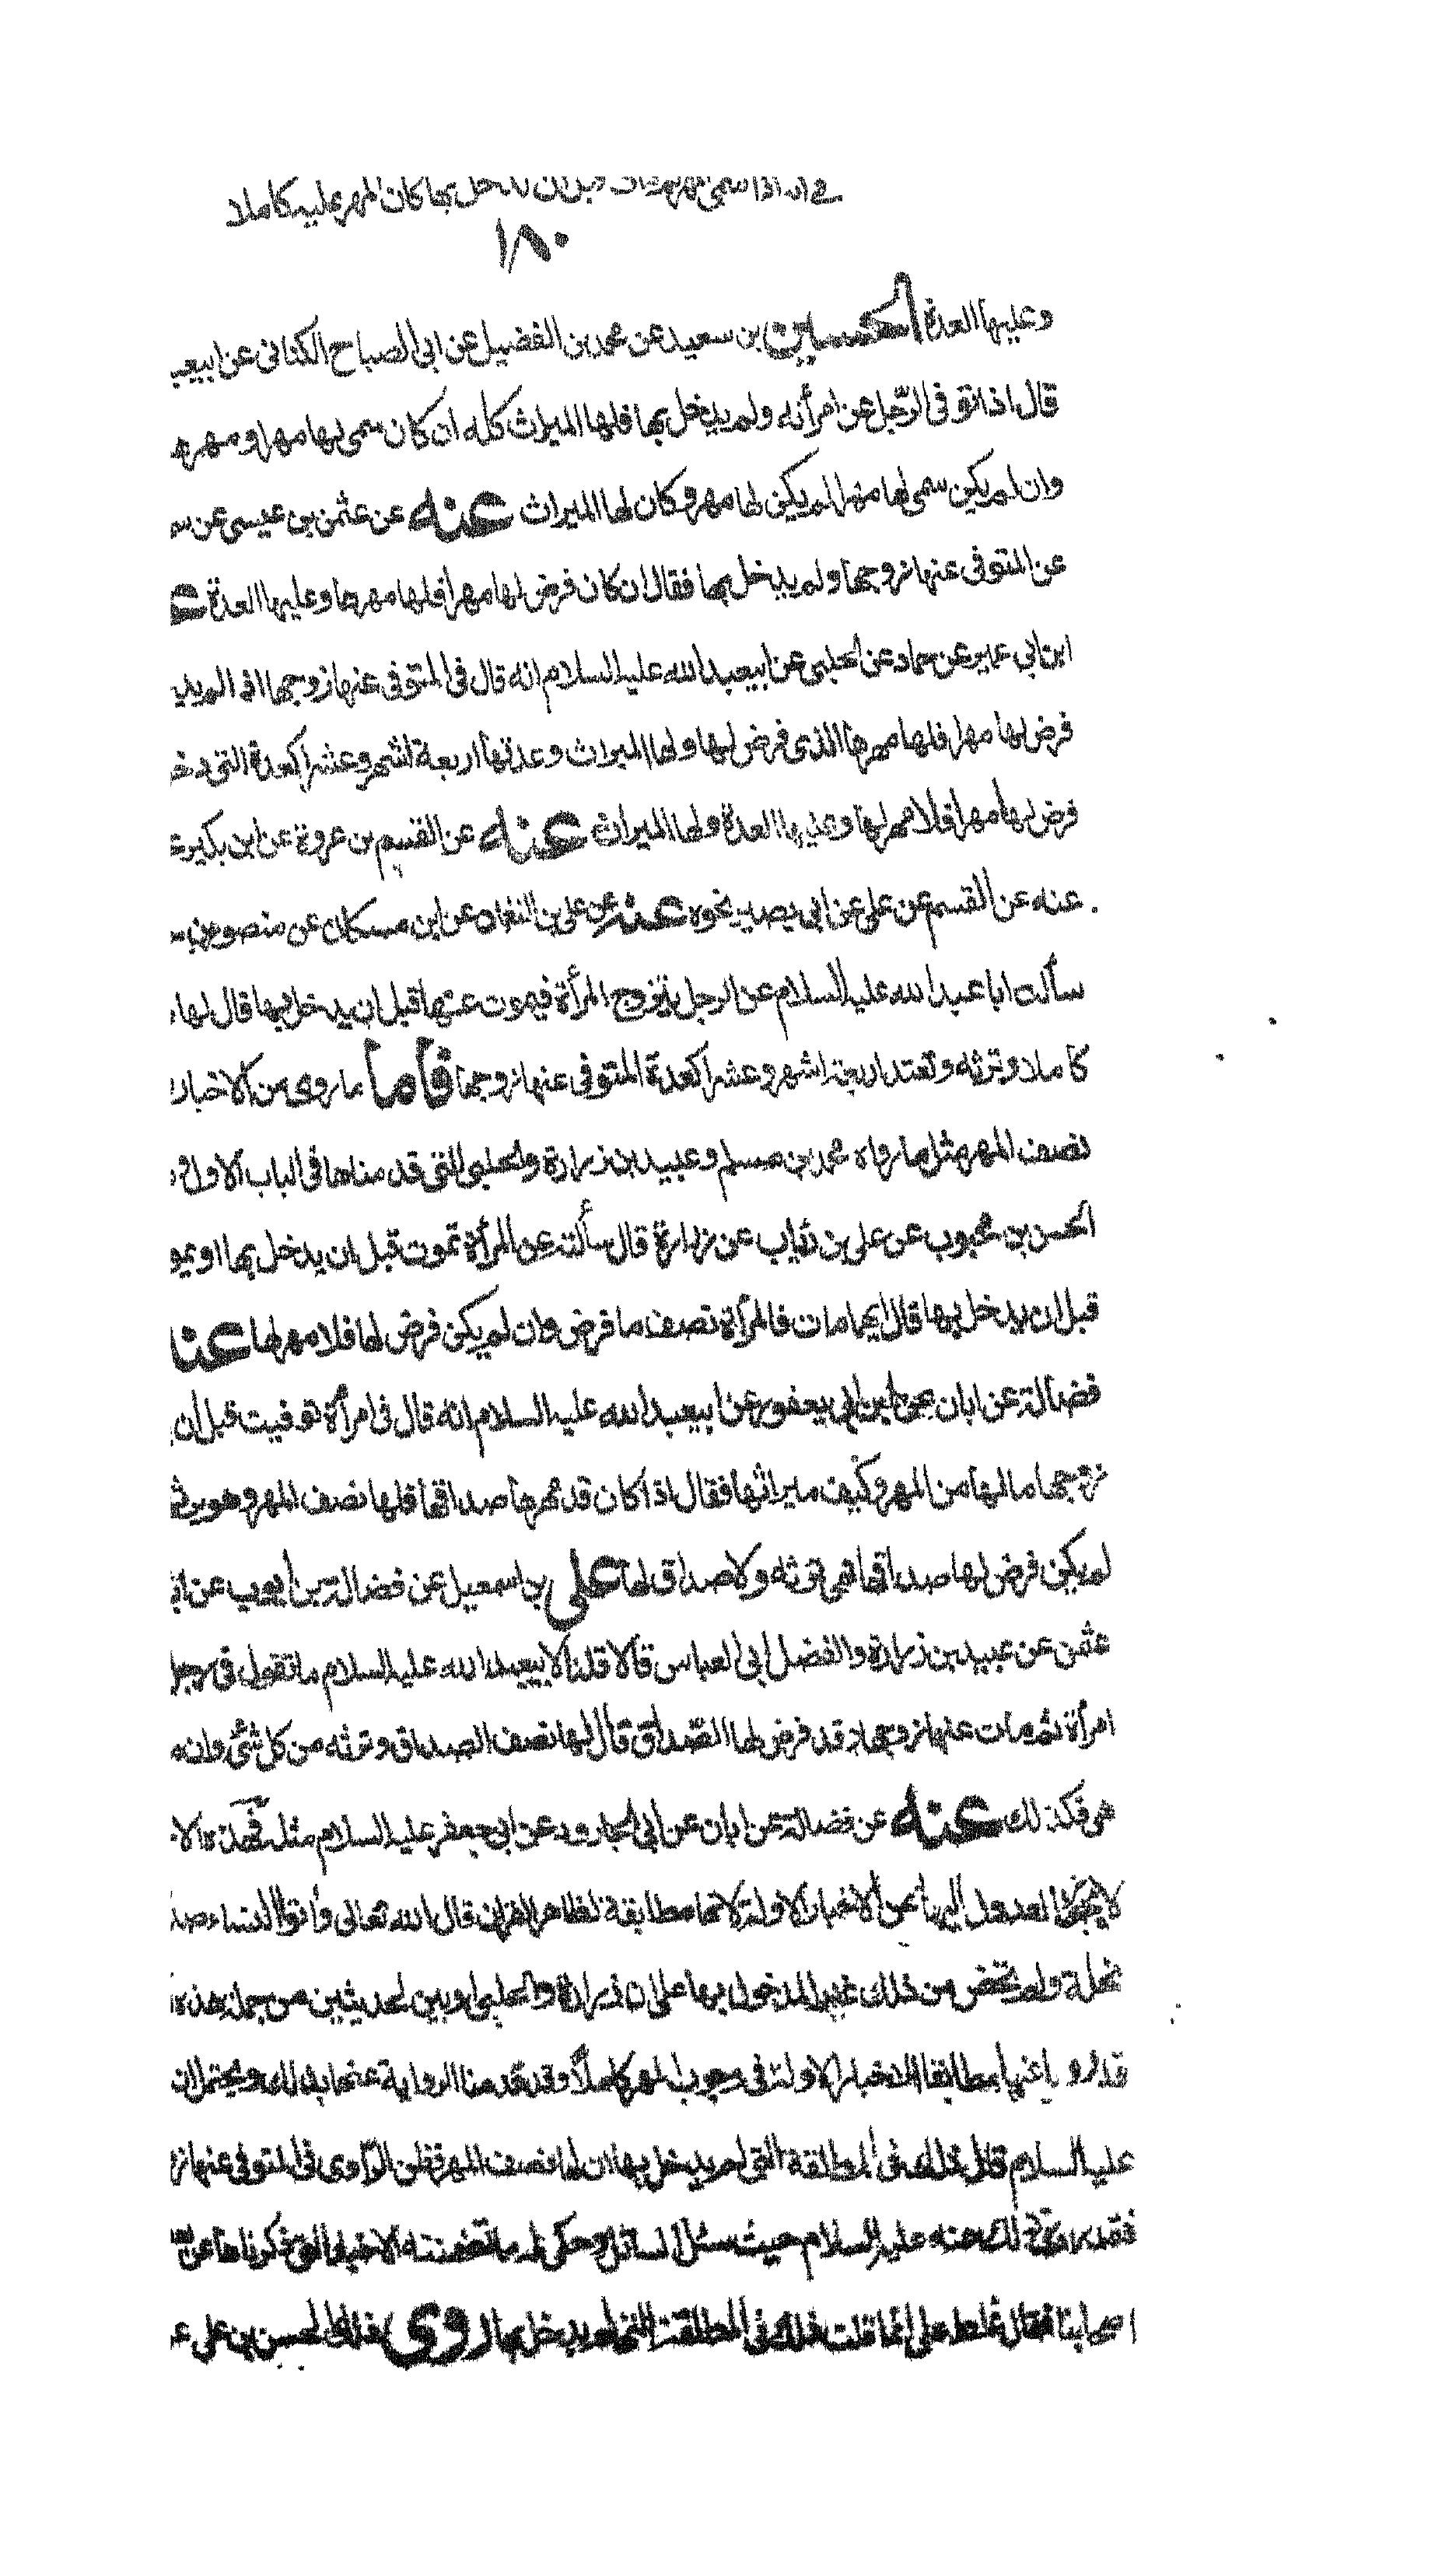 في انه اذا سمى المهر ثم مات قبل ان يدخل بها كان المهر عليه كاملا
١٨٠
وعليها العدة الحسين بن سعيد عن محمد بن الفضيل عن ابي الصباح الكناني عن ابيعبد
قال اذا توفى الرّجل عن امرأته ولم يدخل بها فلها الميراث كله ان كان سمى لها مهرا ومهرها
وان لم يكن سمى لها مهرا لم يكن لها مهر وكان لها الميراث عنه عن عثمن بن عيسى عن سـ
عن المتوفى عنها زوجها ولم يدخل بها فقال ان كان فرض لها مهرا فلها مهرها وعليها العدة عـ
ابن ابي عمير عن حماد عن الحلبي عن ابيعبد الله عليه السلام انه قال في المتوفى عنها زوجها اذا لم يد
فرض لها مهرا فلها مهرها الذى فرض لها ولها الميراث وعدتها اربعة اشهر وعشرا كعدة التى دخـ
فرض لها مهرا فلا مهر لها وعليها العدة ولها الميراث عنه عن القسم بن عروة عن ابن بكير عـ
عنه عن القسم عن علي عن ابي بصير نحوه عنه عن علي بن النعمان عن ابن مسكان عن منصور بن
سألت ابا عبد الله عليه السلام عن الرجل يتزوج المرأة فيموت عنها قبل ان يدخل بها قال لها
كاملا وترثه وتعتد اربعة اشهر وعشرا كعدة المتوفى عنها زوجها فأما ما روى من الاخبار
نصف المهر مثل ما رواه محمد بن مسلم وعبيد بن زرارة والحلبي التى قدمناها فى الباب الاول
الحسن بن محبوب عن علي بن رئاب عن زرارة قال سألته عن المرأة تموت قبل ان يدخل بها او يمو
قبل ان يدخل بها قال ايهما مات فللمرأة نصف ما فرض وان لم يكن فرض لها فلا مهر لها عنـ
فضالة عن ابان عن ابن ابي يعفور عن ابيعبد الله عليه السلام انه قال فى امرأة توفيت قبل ان
زوجها مالها من المهر وكيف ميراثها فقال اذا كان قد مهرها صداقها فلها نصف المهر وهو يرثها
لم يكن فرض لها صداقها فهى ترثه ولا صداق لها على بن اسمعيل عن فضالة بن أيوب عن ابـ
عثمن عن عبيد بن زرارة والفضل ابي العباس قالا قلنا لابيعبد الله عليه السلام ما تقول فى رجل
امرأة ثم مات عنها زوجها وقد فرض لها الصداق قال لها نصف الصداق وترثه من كل شئ وان
هى فكذلك عنه عن فضالة عن ابان عن ابي الجارود عن ابي جعفر عليه السلام مثله فهذه الا
لا يجوز العدول اليها عن الاخبار الاولة لانها مطابقة لظاهر القران قال الله تعالى وأتوا النساء صد
نحلة ولم يخص من ذلك غير المدخول بها على ان زرارة والحلبي راويين لحديثين من جملة هذه
قد رويا غيرها مطابقا للاخبار الاولة فى وجوب المهر كاملاً وقد قدمنا الرواية عنهما بذلك ويحتمل ان
عليه السلام قال ذلك فى المطلقة التى لم يدخل بها ان لها نصف المهر فظن الرّاوى فى المتوفى عنها ز
فقد روى ذلك عنه عليه السلام حيث سئل السائل وحكى له ما تضمنته الاخبار التى ذكرناها عن
اصحابنا فقال غلط على انما قلت ذلك فى المطلقة التى لم يدخل بها روى ذلك الحسن بن على عـ